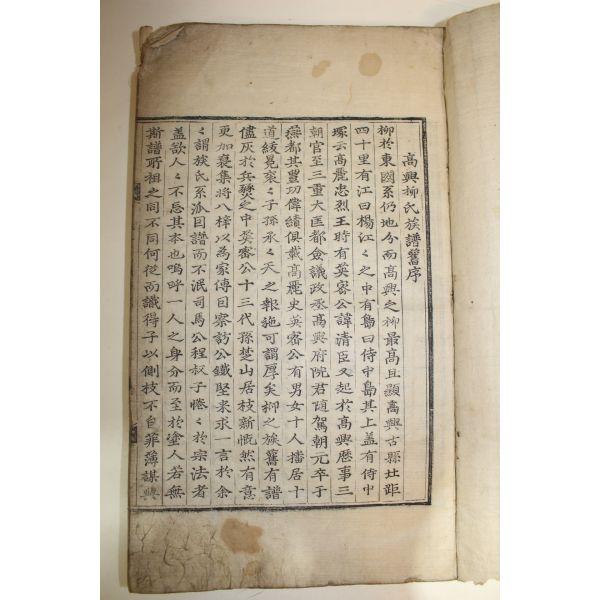 高興柳氏族譜舊序
柳於東國系仍地分而高興之柳最高且顯高興古縣北距
四十里有江曰楊江〻之中有島曰侍中島其上盖有侍中
塚云高麗忠烈王時有英密公諱清臣又起於高興歷事三
朝官至三重大匡都僉議政丞高興府院君隨駕朝元卒于
燕都其豊功偉績俱載高麗史英密公有男女十人擂居十
道綾冕衮〻子孫承〻天之報施可謂厚矣柳之族舊有譜
儘灰於兵燹之中英密公十三代孫楚山居枝新慨然有意
更加裒集將入梓以為家傳目察訪公鐵堅来求一言於余
〻謂族氏系派目譜而不泯司馬公程叔子惓〻於宗法者
盖欲人〻不忘其本也嗚呼一人之身分而至於塗人若無
斯譜所祖之同不同何從而識得子以側枝不自菲薄謀興